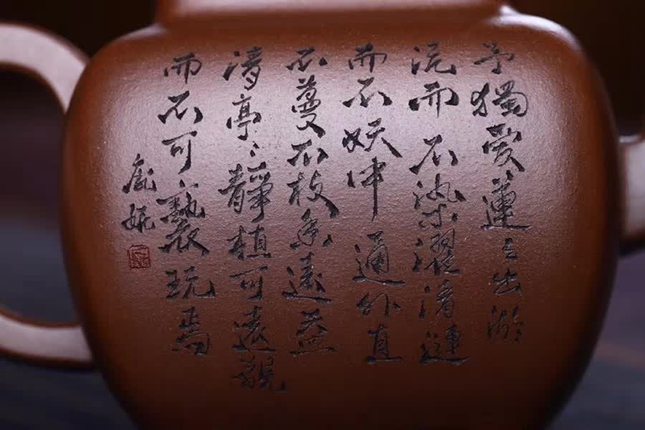 予獨愛蓮之出淤
泥而不染濯清漣
而不妖中通外直
不蔓不枝香遠益
清亭〻靜植可遠觀
而不可褻玩焉